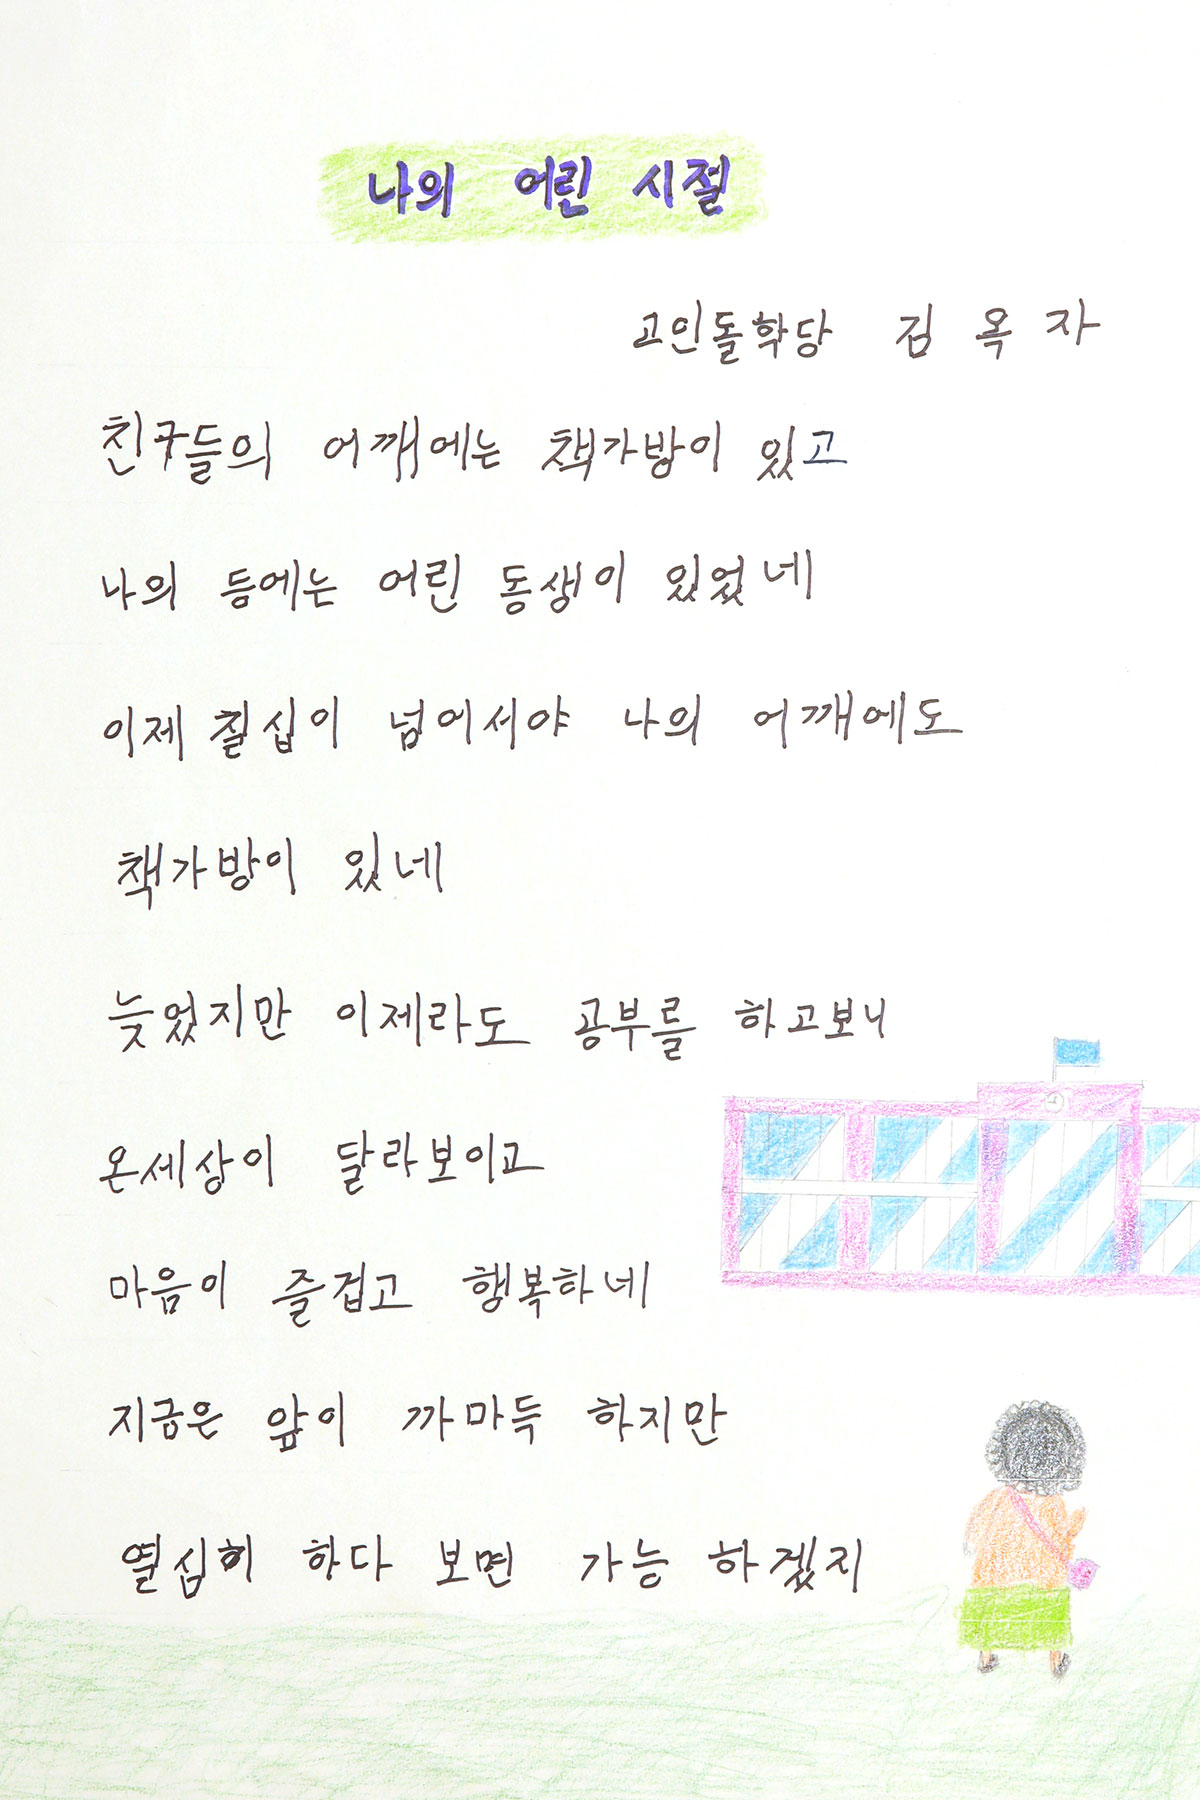 나의 어린 시절
고인돌학당 김 옥 자
친구들의 어깨에는 책가방이 있고
나의 등에는 어린 동생이 있었네
이제 칠십이 넘어서야 나의 어깨에도
책가방이 있네
늦었지만 이제라도 공부를 하고보니
온세상이 달라보이고
마음이 즐겁고 행복하네
지금은 앞이 까마득 하지만
열심히 하다 보면 가능 하겠지